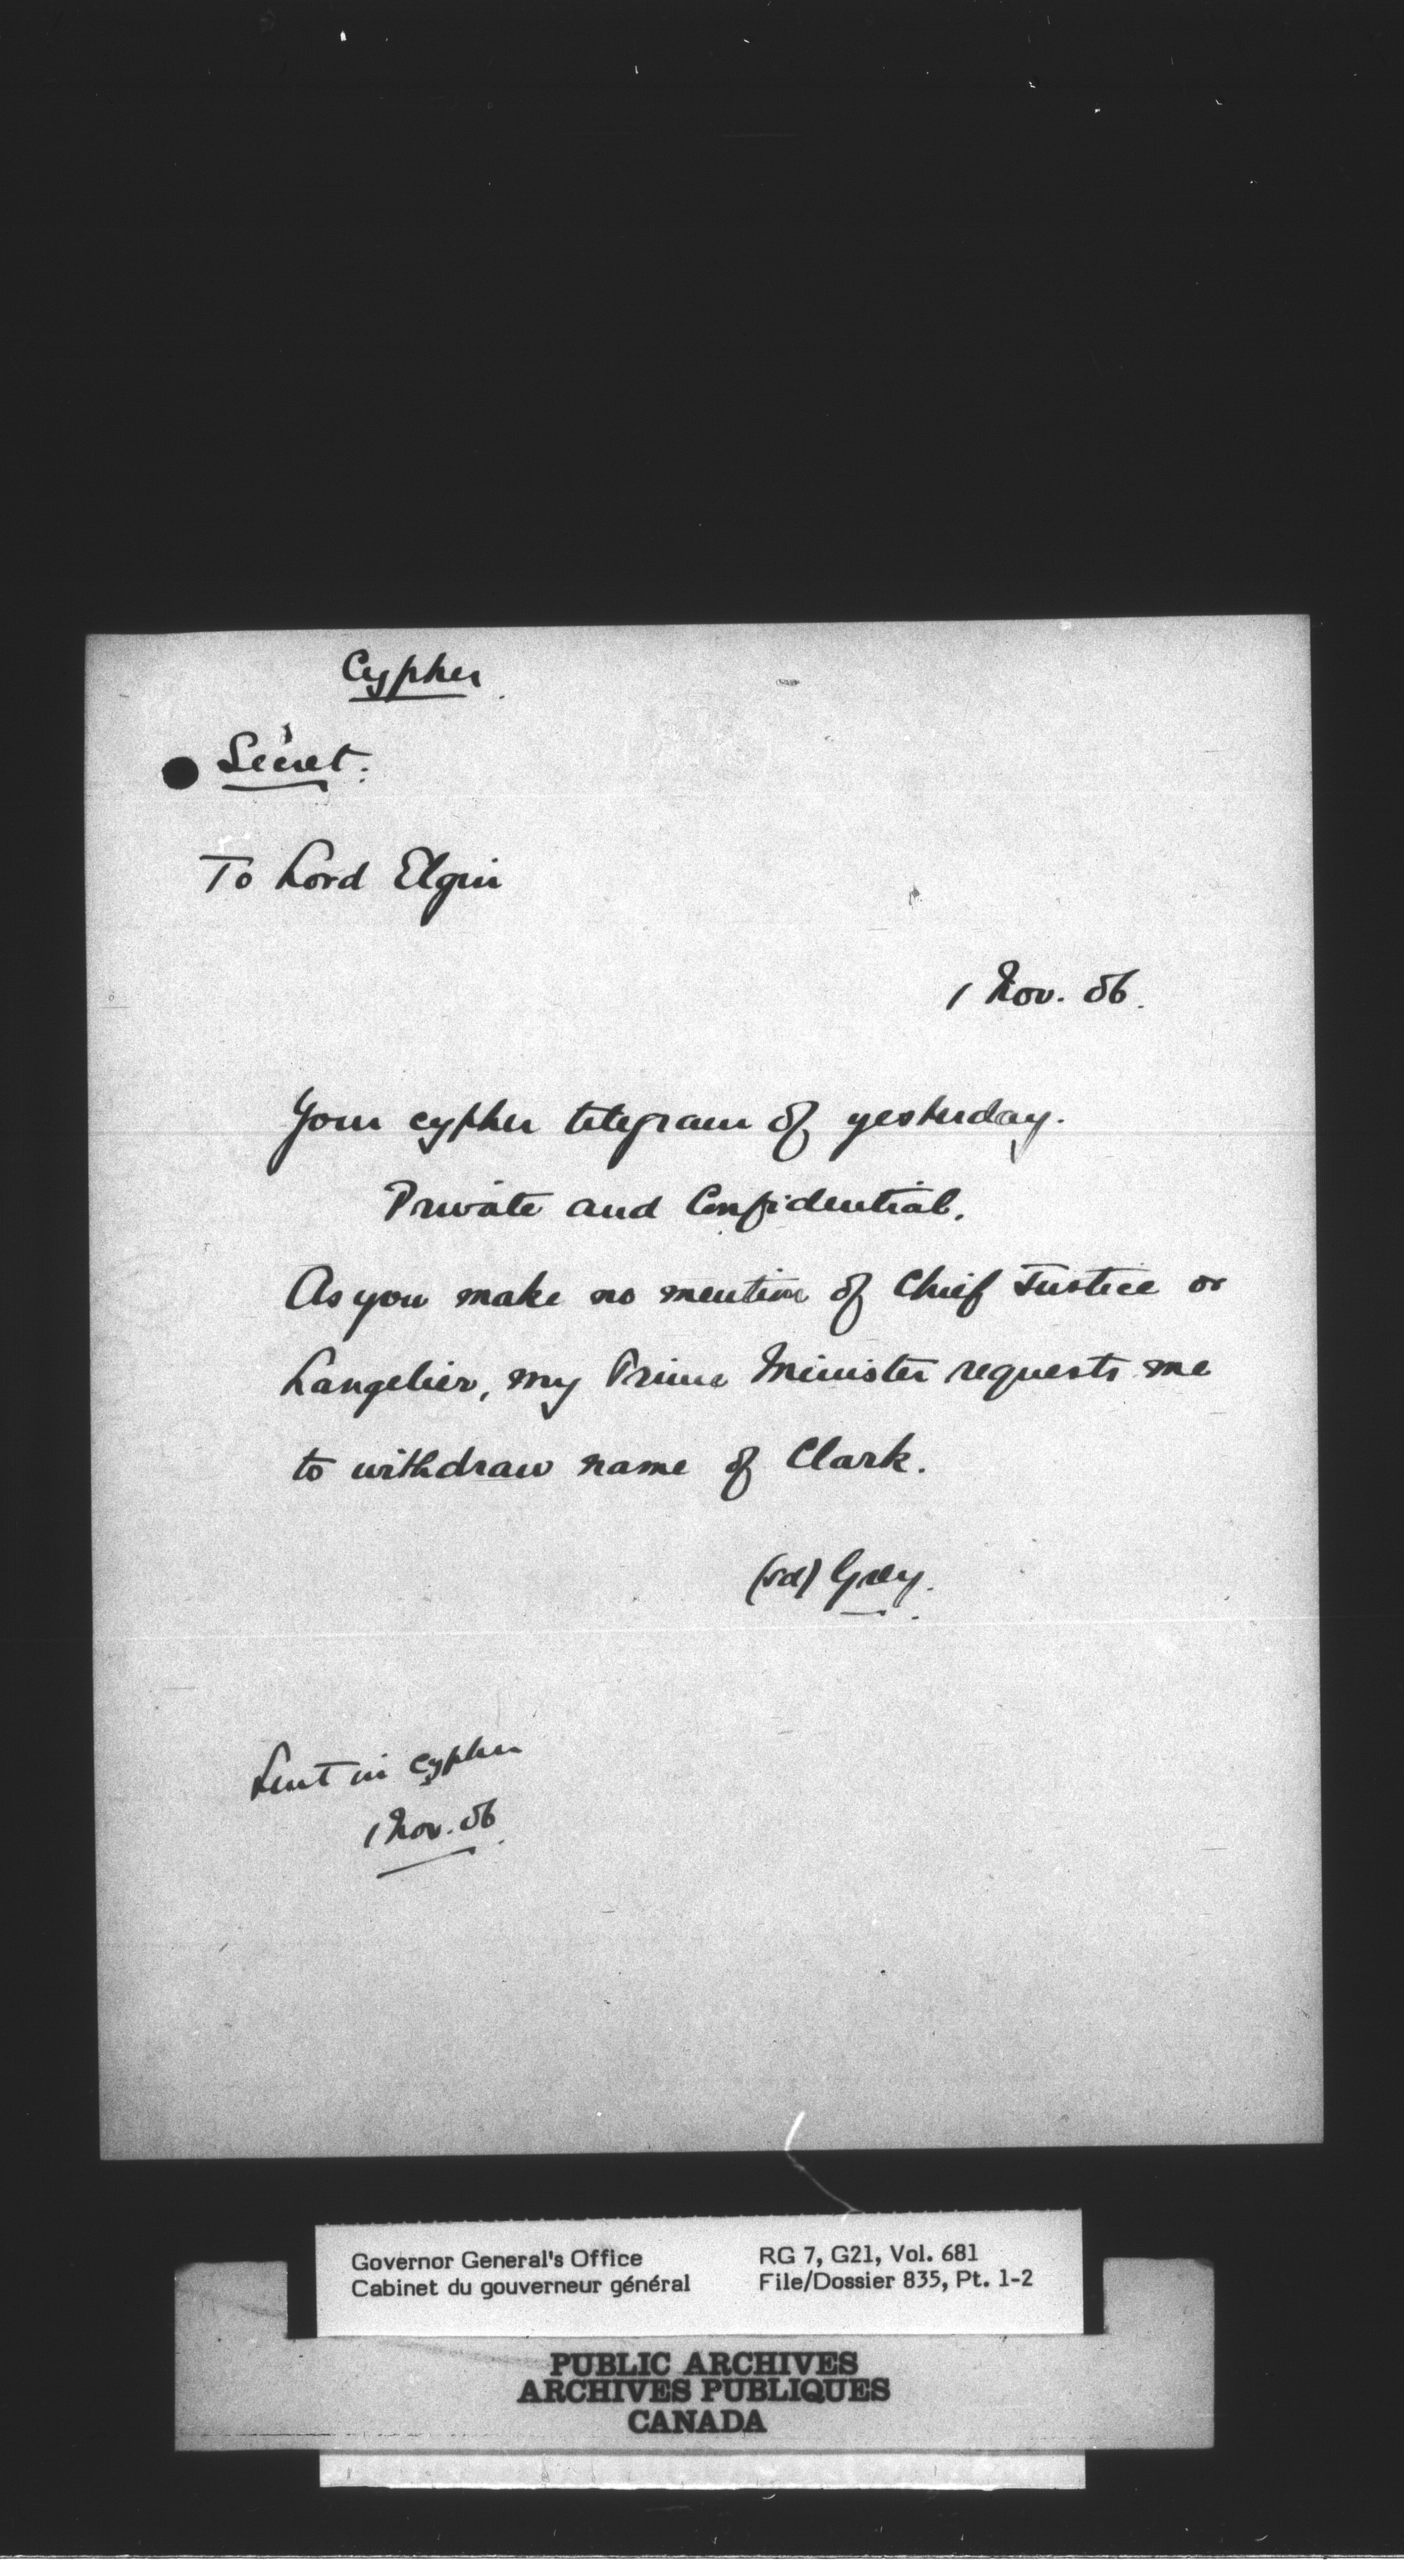 Cypher.
Secret:
To Lord Elgin
1 Nov. 06.
Your cypher telegram of yesterday.
Private and Confidential.
As you make no mention of Chief Justice or
Langelier, my Prime Minister requests me
to withdraw name of Clark.
(sd) Grey.
Sent in cypher
1 Nov. 06.
Governor General's Office RG 7, G21, Vol. 681
Cabinet du gouverneur général File/Dossier 835, Pt. 1-2
PUBLIC ARCHIVES
ARCHIVES PUBLIQUES
CANADA